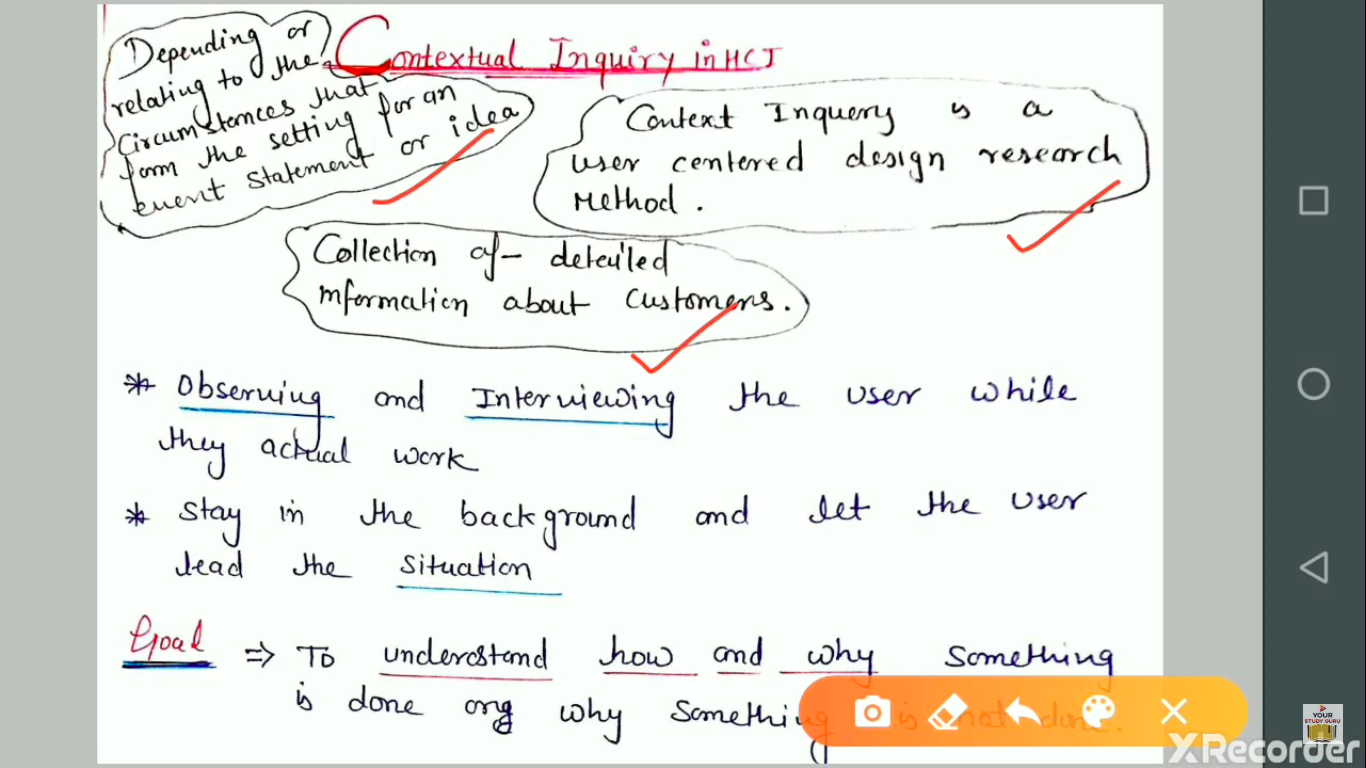 Contextual Inquiry in HCI
Depending or
relating to the
circumstances that
form the setting for an
event statement or idea
Context Inquery is a
user centered design research
Method.
Collection of detailed
information about customers.
* Observing and Interviewing the user while
they actual work
* Stay in the background and let the user
lead the situation
Goal ⇒ To understand how and why something
is done why something is not done.
YOUR
STUDY GURU
XRecorder